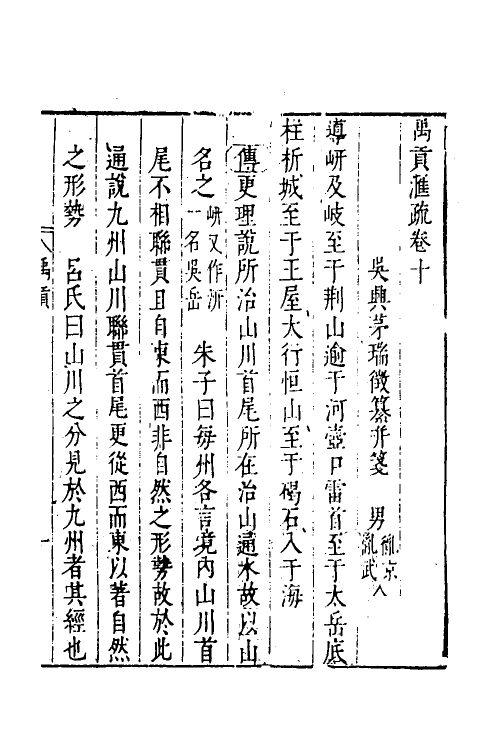 禹貢滙疏卷十
吳興茅瑞徵纂并箋 男胤京胤武
導岍及岐至于荆山逾于河壺口雷首至于太岳底
柱析城至于王屋太行恒山至于碣石入于海
傳更理說所治山川首尾所在治山通水故以山
名之岍又作汧一名吳岳 朱子曰每州各言境內山川首
尾不相聯貫且自東而西非自然之形勢故於此
通說九州山川聯貫首尾更從西而東以著自然
之形勢 呂氏曰山川之分見於九州者其經也
禹貢
一